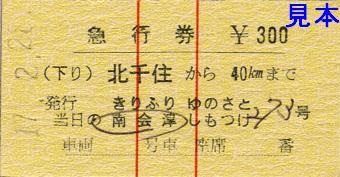 見本
急行券 ¥300
(下り) 北千住 から 40kmまで
発行 きりふり ゆのさと
当日の 南会津 しもつけ 273号
車両 号車 座席 番